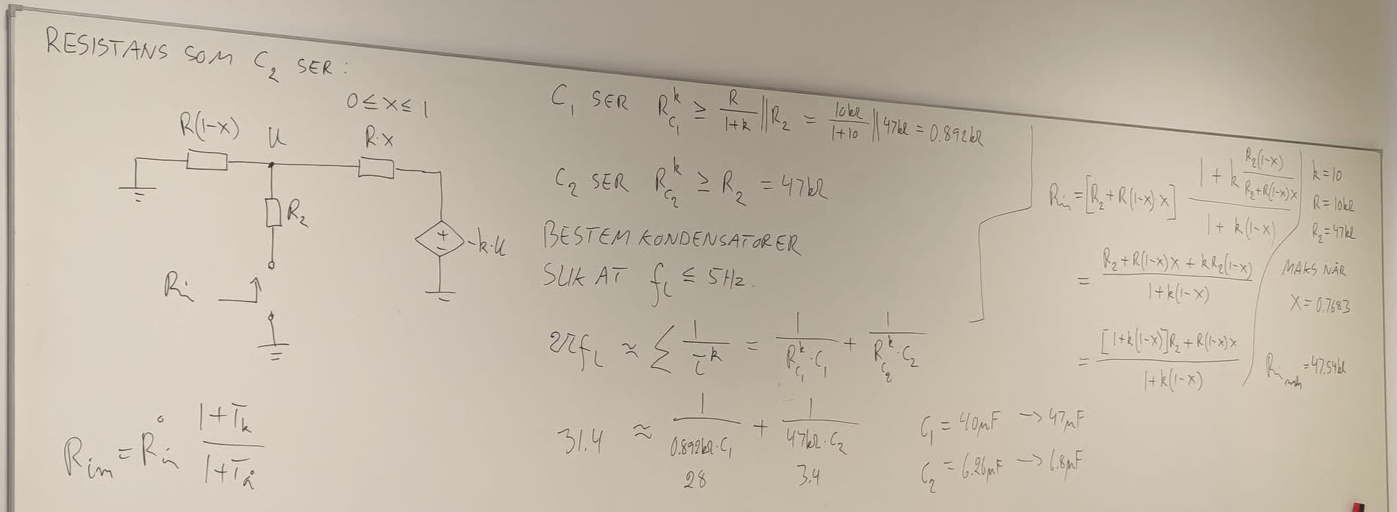 RESISTANS SOM C₂ SER :
0 ≤ x ≤ 1
R(1-x)
u
R·x
R₂
-k·u
+
-
Rin
Rin = R°in (1+Tk)/(1+Tå)
C₁ SER R^k_C₁ ≥ R/(1+k) || R₂ = 10kΩ/(1+10) || 47kΩ = 0.892kΩ
C₂ SER R^k_C₂ ≥ R₂ = 47kΩ
BESTEM KONDENSATORER
SLIK AT f_L ≤ 5Hz.
2πf_L ≈ Σ 1/τ^k = 1/(R^k_C₁·C₁) + 1/(R^k_C₂·C₂)
31.4 ≈ 1/(0.892kΩ·C₁) + 1/(47kΩ·C₂)
28 3.4
C₁ = 40µF → 47µF
C₂ = 6.26µF → 6.8µF
Rin = [R₂+R(1-x)x] (1 + k R₂(1-x)/(R₂+R(1-x)x))/(1 + k(1-x))
= (R₂+R(1-x)x + kR₂(1-x))/(1+k(1-x))
= ([1+k(1-x)]R₂ + R(1-x)x)/(1+k(1-x))
k=10
R=10kΩ
R₂=47kΩ
MAKS NÅR
x=0.7683
Rin maks = 47.54kΩ